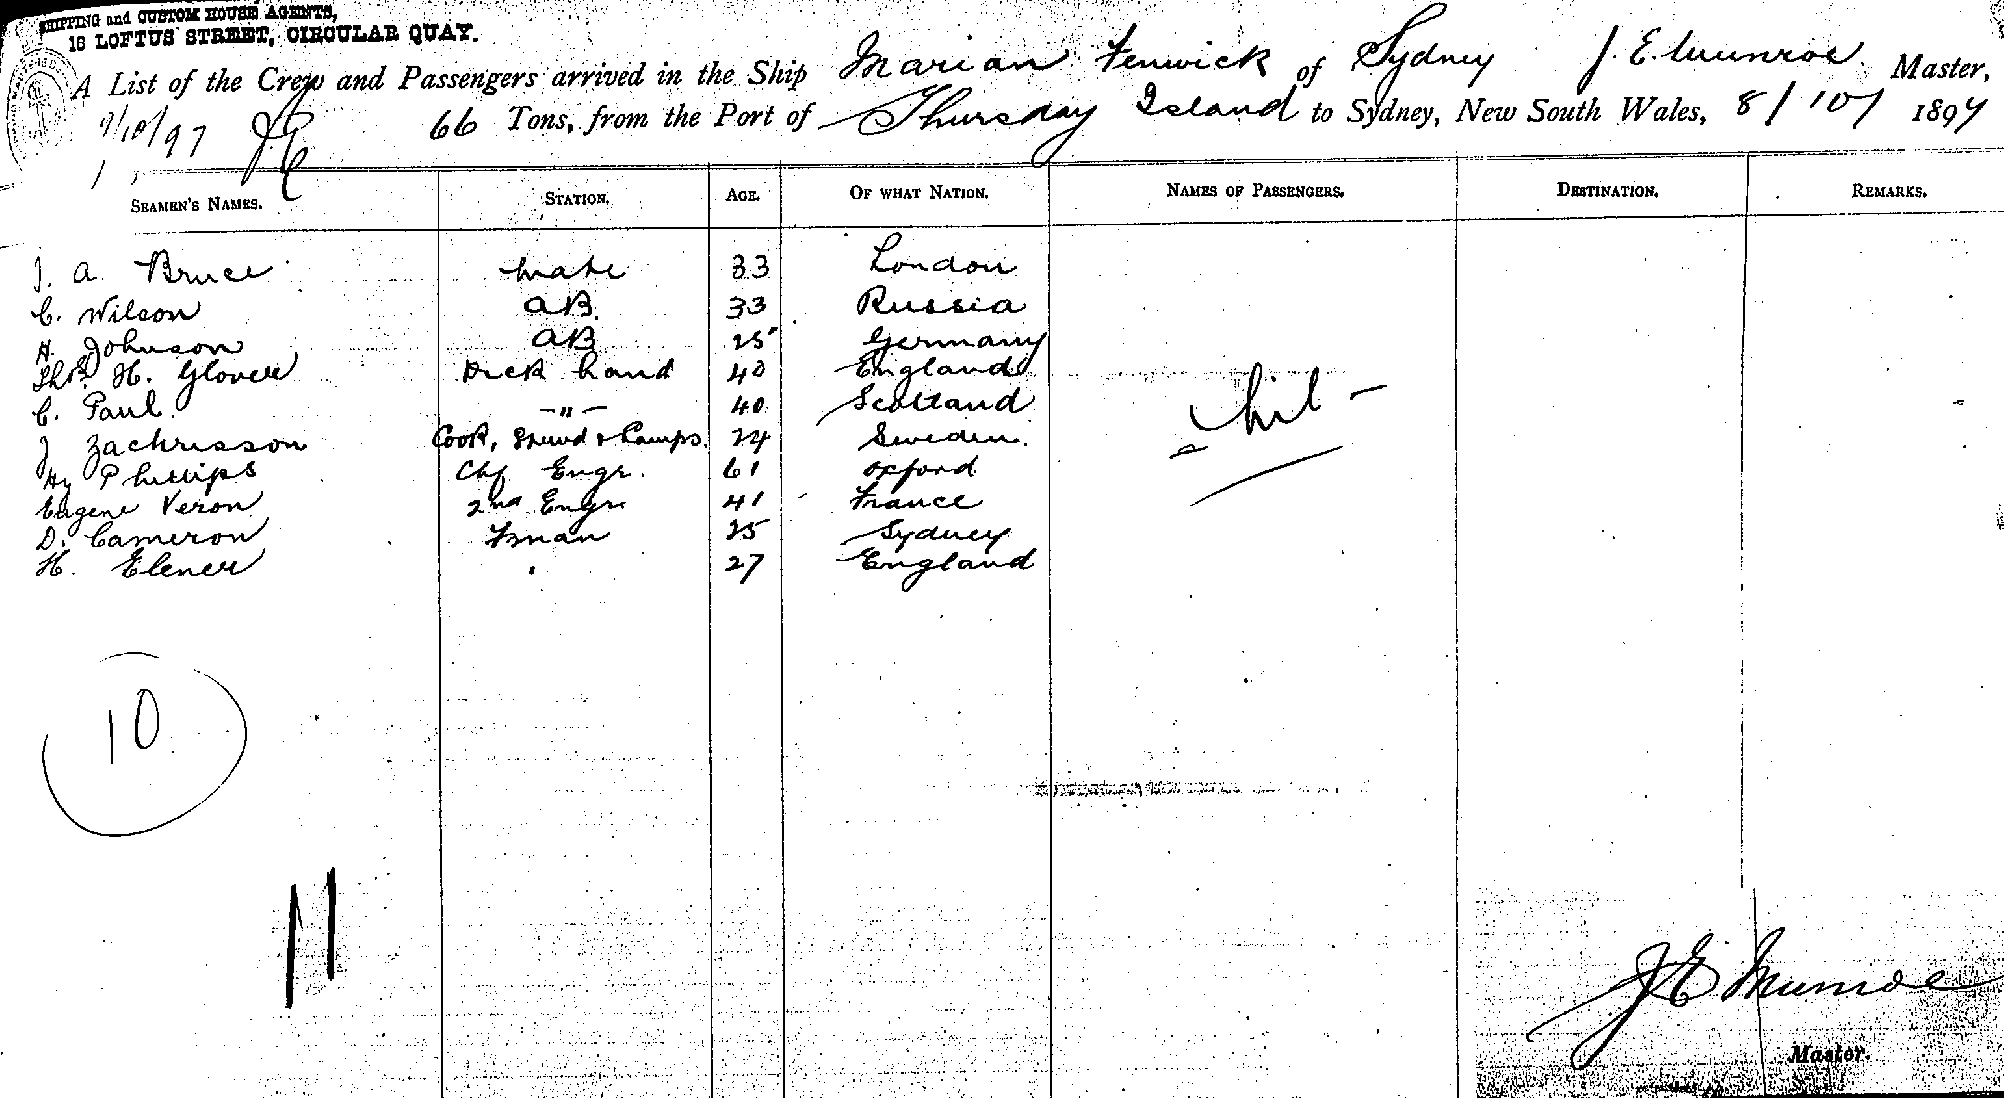 SHIPPING and CUSTOM HOUSE AGENTS,
16 LOFTUS STREET, CIRCULAR QUAY.
A List of the Crew and Passengers arrived in the Ship Marian Fenwick of Sydney J. E. Munroe Master,
9/10/97 66 Tons, from the Port of Thursday Island to Sydney, New South Wales, 8/10/ 1897
SEAMEN'S NAMES. STATION. AGE. OF WHAT NATION. NAMES OF PASSENGERS. DESTINATION. REMARKS.
J. A. Bruce Mate 33 London
C. Wilson AB. 33 Russia
H. Johnson AB 25 Germany
Thos. H. Glover Deck hand 40 England
C. Paul. —"— 40. Scotland — Nil —
J Zachrisson Cook, Steward & Lamps. 24 Sweden.
Hy Phillips Chf Engr. 61 Oxford
Eugene Veron 2nd Engr 41 France
D. Cameron Fman 25 Sydney
H. Elener " 27 England
10
11
J E Munroe
Master.